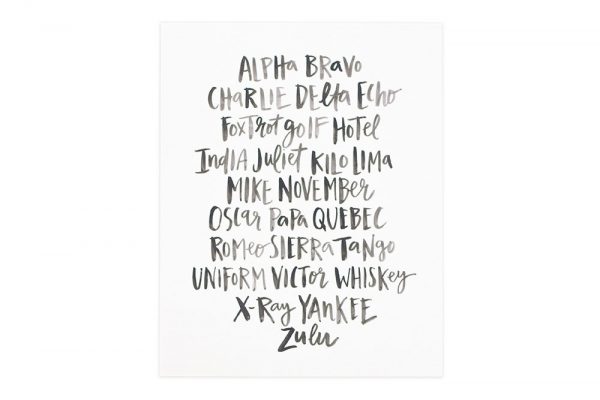 ALPHa BRaVo
CHaRLIE DElta Echo
FoxTrot golf HoTel
IndIA Juliet KILO LIMA
MIKE NOVEMBER
OScar PaPA QUEBEC
RoMeo SIERRA TaNgo
UNIFORM VICTOR WHISKEY
X-Ray YANKEE
Zulu